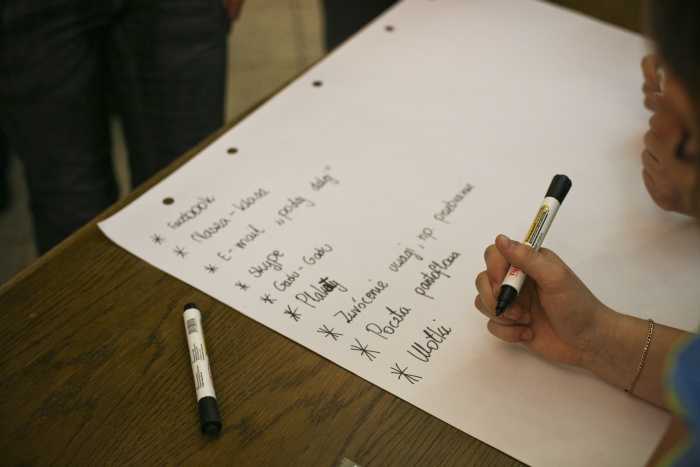 * Facebook
* Nasza - klasa
* E-mail „podaj dalej"
* Skype
* Gadu - Gadu
* Plakaty
* Zwrócenie uwagi, np. przebranie
* Poczta pantoflowa
* Ulotki